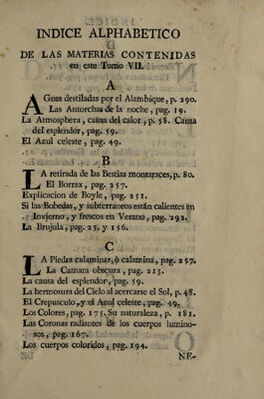 INDICE ALPHABETICO
DE LAS MATERIAS CONTENIDAS
en este Tomo VII.
A
AGuas destiladas por el Alambique, p. 290.
Las Antorchas de la noche, pag. 19.
La Atmosphera, causa del calor, p. 58. Causa
del esplendor, pag. 59.
El Azul celeste, pag. 49.
B
LA retirada de las Bestias montaraces, p. 80.
El Borrax, pag. 257.
Explicacion de Boyle, pag. 251.
Si las Bobedas, y subterraneos están calientes en
Invierno, y frescos en Verano, pag. 292.
La Brujula, pag. 25. y 156.
C
LA Piedra calaminar, ò calamina, pag. 257.
La Camara obscura, pag. 213.
La causa del esplendor, pag. 59.
La hermosura del Cielo al acercarse el Sol, p. 48.
El Crepusculo, y el Azul celeste, pag. 49.
Los Colores, pag. 175. Su naturaleza, p. 181.
Las Coronas radiantes de los cuerpos lumino-
sos, pag. 167.
Los cuerpos coloridos, pag. 194.
NE-